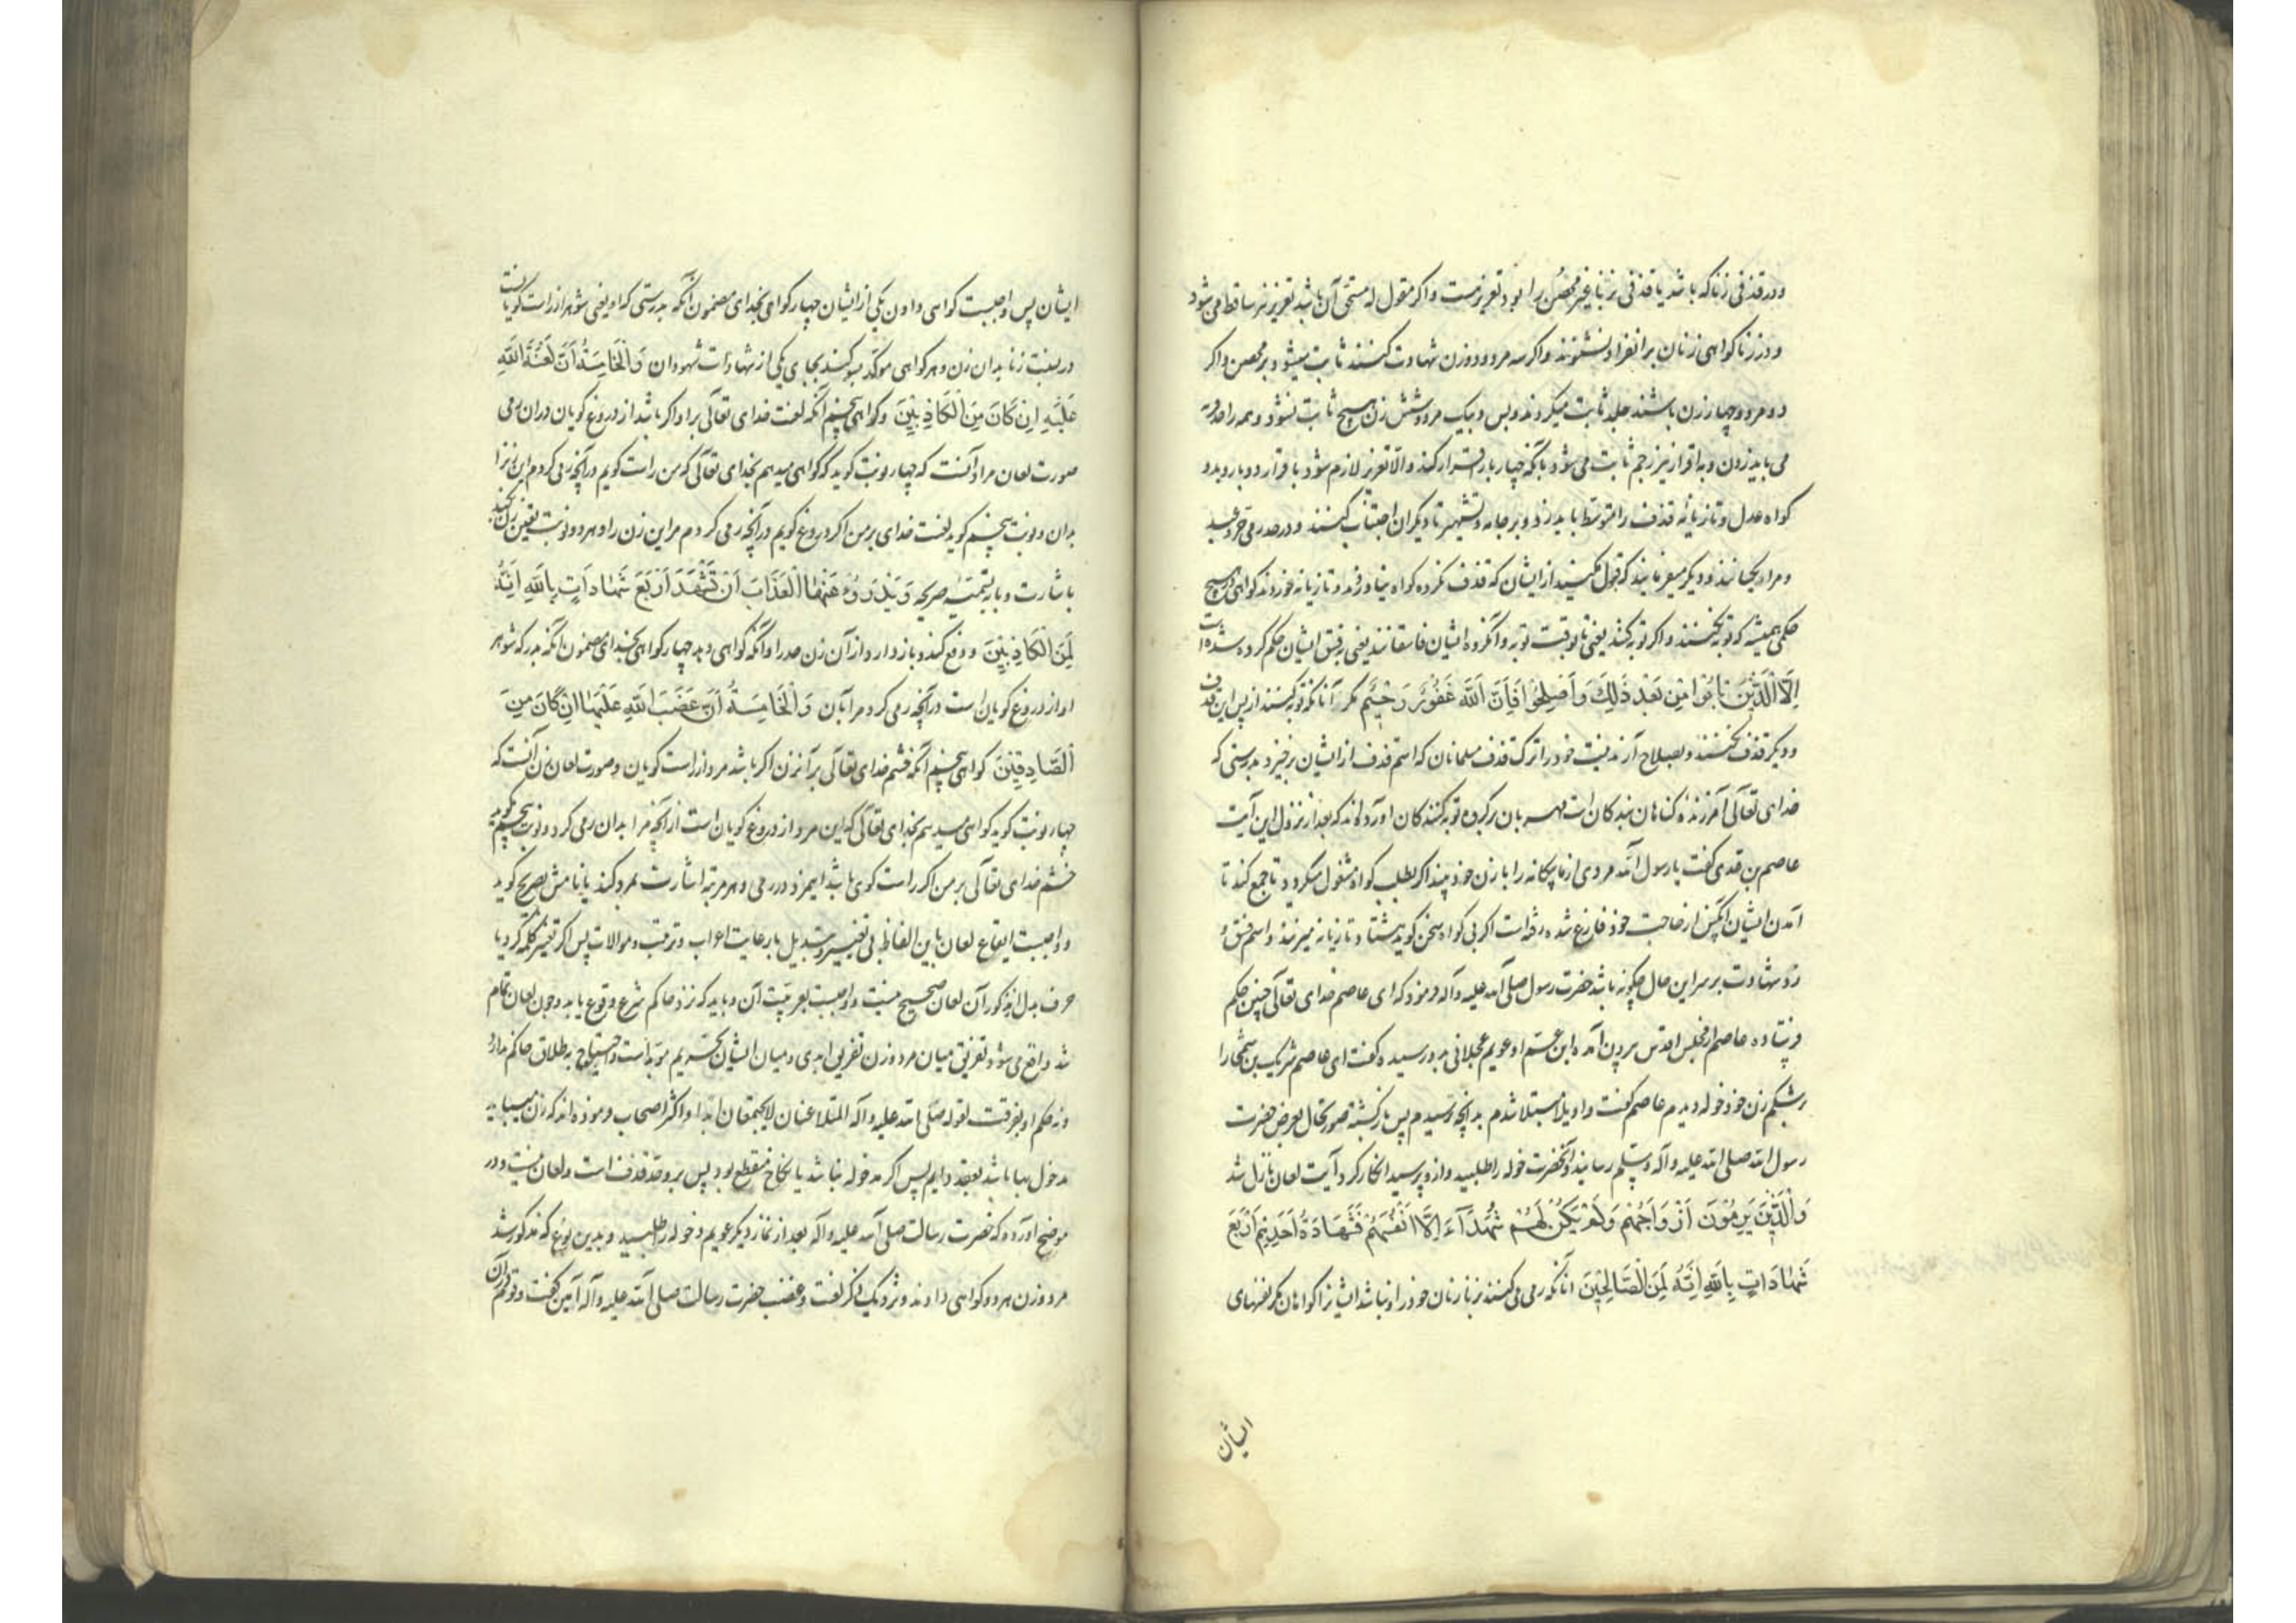 و در قذفی زنا که باشد یا قذفی بزنا غیر محصن را بود تعزیرست و اکر مقول له مستحق آن باشد تعزیر نیز ساقط می شود
و در زنا کواهی زنان بر انفراد نشنوند و اکر سه مرد و دو زن شهادت کنند ثابت میشود بر محصن و اکر
دو مرد و چهار زن باشند جلد ثابت میکردد و بس و بیک مرد و شش زن هیچ ثابت نشود و همه را حد
می باید زدن و به اقرار نیز رجم ثابت می شود بآنکه چهار بار اقرار کند و الا تعزیر لازم شود باقرار دو بار و بدو
کواه عدل و تازیانه قذف را متوسط باید زد و بر جامه و تشهیر تا دیکران اجتناب کنند و در حد رمی حر و عبد
و مراد یکسانند و دیکر میفرمایند که قبول مکنید از ایشان که قذف کرده کواه نیاورند و تازیانه خوردند کواهی در هیچ
حکمی همیشه که توبه نکنند و اکر توبه کنند یعنی تا بوقت توبه و آنکروه ایشان فاسقانند یعنی بفسق ایشان حکم کرده شده است
إِلَّا الَّذِينَ تَابُوا مِنْ بَعْدِ ذَلِكَ وَأَصْلَحُوا فَإِنَّ اللَّهَ غَفُورٌ رَحِيمٌ مکر آنانکه توبه کنند از پس این قذف
و دیکر قذف نکنند و بصلاح آرند نیت خود را بترک قذف مسلمانان که اسم قذف از ایشان برخیزد بدرستی که
خدای تعالی آمرزنده کناهان بندکان است مهربان بر کروه توبه کنندکان آورده اند که بعد از نزول این آیت
عاصم بن عدی کفت یا رسول الله مردی از ما بیکانه را با زن خود بیند اکر بطلب کواه مشغول میکردد تا جمع کند تا
آمدن ایشان آنکس از حاجت خود فارغ شده رفته است اکر بی کواه سخن کوید هشتاد تازیانه میزنند و اسم فسق و
رد شهادت بر سر این حال چکونه باشد حضرت رسول صلی الله علیه و آله فرمود که ای عاصم خدای تعالی چنین حکم
فرستاده عاصم از مجلس اقدس بیرون آمد و ابن عم او عویم عجلانی بدو رسیده کفت ای عاصم شریک بن سمحا را
بر شکم زن خود خوله دیدم عاصم کفت واویلا مبتلا شدم بدانچه ترسیدم پس بازکشته صورتحال بعرض حضرت
رسول الله صلی الله علیه و آله وسلم رسانید و آنحضرت خوله را طلبید و ازو پرسید انکار کرد و آیت لعان نازل شد
وَالَّذِينَ يَرْمُونَ أَزْوَاجَهُمْ وَلَمْ يَكُنْ لَهُمْ شُهَدَاءُ إِلَّا أَنْفُسُهُمْ فَشَهَادَةُ أَحَدِهِمْ أَرْبَعُ
شَهَادَاتٍ بِاللَّهِ إِنَّهُ لَمِنَ الصَّالِحِينَ آنانکه رمی می کنند بزنا زنان خود را و نباشد ایشانرا کواهان مکر نفسهای
ایشان
ایشان پس واجبست کواهی دادن یکی از ایشان چهار کواهی بخدای مضمون آنکه بدرستی که او یعنی شوهر از راست کویانست
در نسبت زنا بدان زن و هر کواهی موکد بسوکند بجای یکی از شهادات شهود آن وَالْخَامِسَةُ أَنَّ لَعْنَةَ اللَّهِ
عَلَيْهِ إِنْ كَانَ مِنَ الْكَاذِبِينَ و کواهی پنجم آنکه لعنت خدای تعالی بر او اکر باشد از دروغ کویان در آن رمی
صورت لعان مرد آنست که چهار نوبت کوید که کواهی میدهم بخدای تعالی که من راست کویم در آنچه رمی کردم این زنرا
بدان و نوبت پنجم کوید لعنت خدای بر من اکر دروغ کویم در آنچه رمی کردم مر این زن را و هر دو نوبت تعیین زن کند
باشارت و یا بتسمیه صریحه وَيَدْرَؤُا عَنْهَا الْعَذَابَ أَنْ تَشْهَدَ أَرْبَعَ شَهَادَاتٍ بِاللَّهِ إِنَّهُ
لَمِنَ الْكَاذِبِينَ و دفع کند و باز دارد از آن زن حد را آنکه کواهی دهد چهار کواهی بخدای مضمون آنکه بدرستی که شوهر
او از دروغ کویان است در آنچه رمی کرد مرا بآن وَالْخَامِسَةَ أَنَّ غَضَبَ اللَّهِ عَلَيْهَا إِنْ كَانَ مِنَ
الصَّادِقِينَ کواهی پنجم آنکه خشم خدای تعالی بر آنزن اکر باشد مرد از راست کویان و صورت لعان زن آنست که
چهار نوبت کوید کواهی میدهم بخدای تعالی که این مرد از دروغ کویان است از آنچه مرا بدان رمی کرد و نوبت پنجم کوید
خشم خدای تعالی بر من اکر راست کوی باشد اینمرد در رمی و هر مرتبه اشارت بمرد کند یا نامش بصریح کوید
و واجبست ایقاع لعان باین الفاظ بی تغییر و تبدیل با رعایت اعراب و ترتیب و موالات پس اکر تغییر کلمه کرد یا
حرف بدل مذکور آن لعان صحیح نیست و واجبست بعربیت آن و باید که نزد حاکم شرع وقوع یابد و چون لعان تمام
شد واقع می شود تفریق میان مرد و زن تفریق ابدی و میان ایشان تحریم موبد است و احتیاج بطلاق حاکم ندارد
و نه حکم او بفرقت لقوله صلی الله علیه و آله المتلاعنان لا یجتمعان ابدا و اکثر اصحاب فرموده اند که زن میباید
مدخول بها باشد بعقد دایم پس اکر مدخوله نباشد یا نکاح منقطع بود پس برو حد قذف است و لعان نیست و در
موضح آورده که حضرت رسالت صلی الله علیه و آله بعد از نماز دیکر عویم و خوله را طلبید و بدین نوع که مذکور شد
مرد و زن هر دو کواهی دادند و نزدیک ذکر لعنت و غضب حضرت رسالت صلی الله علیه و آله آمین کفت و قوم